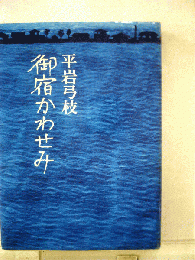 平岩弓枝
御宿かわせみ